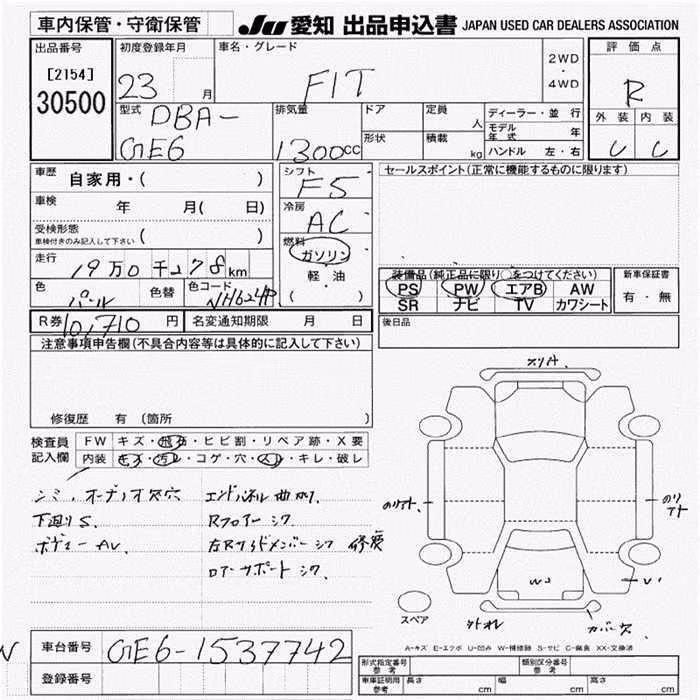 車内保管・守衛保管 JU 愛知 出品申込書 JAPAN USED CAR DEALERS ASSOCIATION
出品番号 初度登録年月 車名・グレード 2WD・4WD 評価点
[2154]
30500
23 月 FIT R
型式 排気量 ドア 定員 人 ディーラー・並行 外装 内装
DBA-
GE6 1300cc 形状 積載 kg モデル年式 年 ハンドル 左・右 C C
車歴 自家用・( ) シフト F5 セールスポイント(正常に機能するものに限ります)
車検 年 月( 日) 冷房 AC
受検形態 車検付きのみ記入して下さい ( )
燃料 ガソリン・軽・油 ( )
走行 19万0千278km
色 パール 色替 色コード NH624P
装備品(純正品に限り○をつけてください) 新車保証書
PS PW エアB AW 有・無
SR ナビ TV カワシート
R券 10,710円 名変通知期限 月 日 後日品
注意事項申告欄(不具合内容等は具体的に記入して下さい)
修復歴 有 (箇所
検査員記入欄 FW キズ・飛石・ヒビ割・リペア跡・X要
内装 キズ・汚レ・コゲ・穴・スレ・キレ・破レ
シミ、オーディオ欠穴 エンドパネル曲がり
下廻りS Rフロアーシワ
ボディーAV 左Rサイドメンバーシワ 修復
ロアーサポートシワ
スリキ
W3
スペア
A-キズ E-エクボ U-凹み W-補修跡 S-サビ C-腐食 XX-交換済
車台番号 GE6-1537742
登録番号
形式指定番号 参考 類別区分番号 参考
車庫証明用 参考 長さ cm 幅 cm 高さ cm